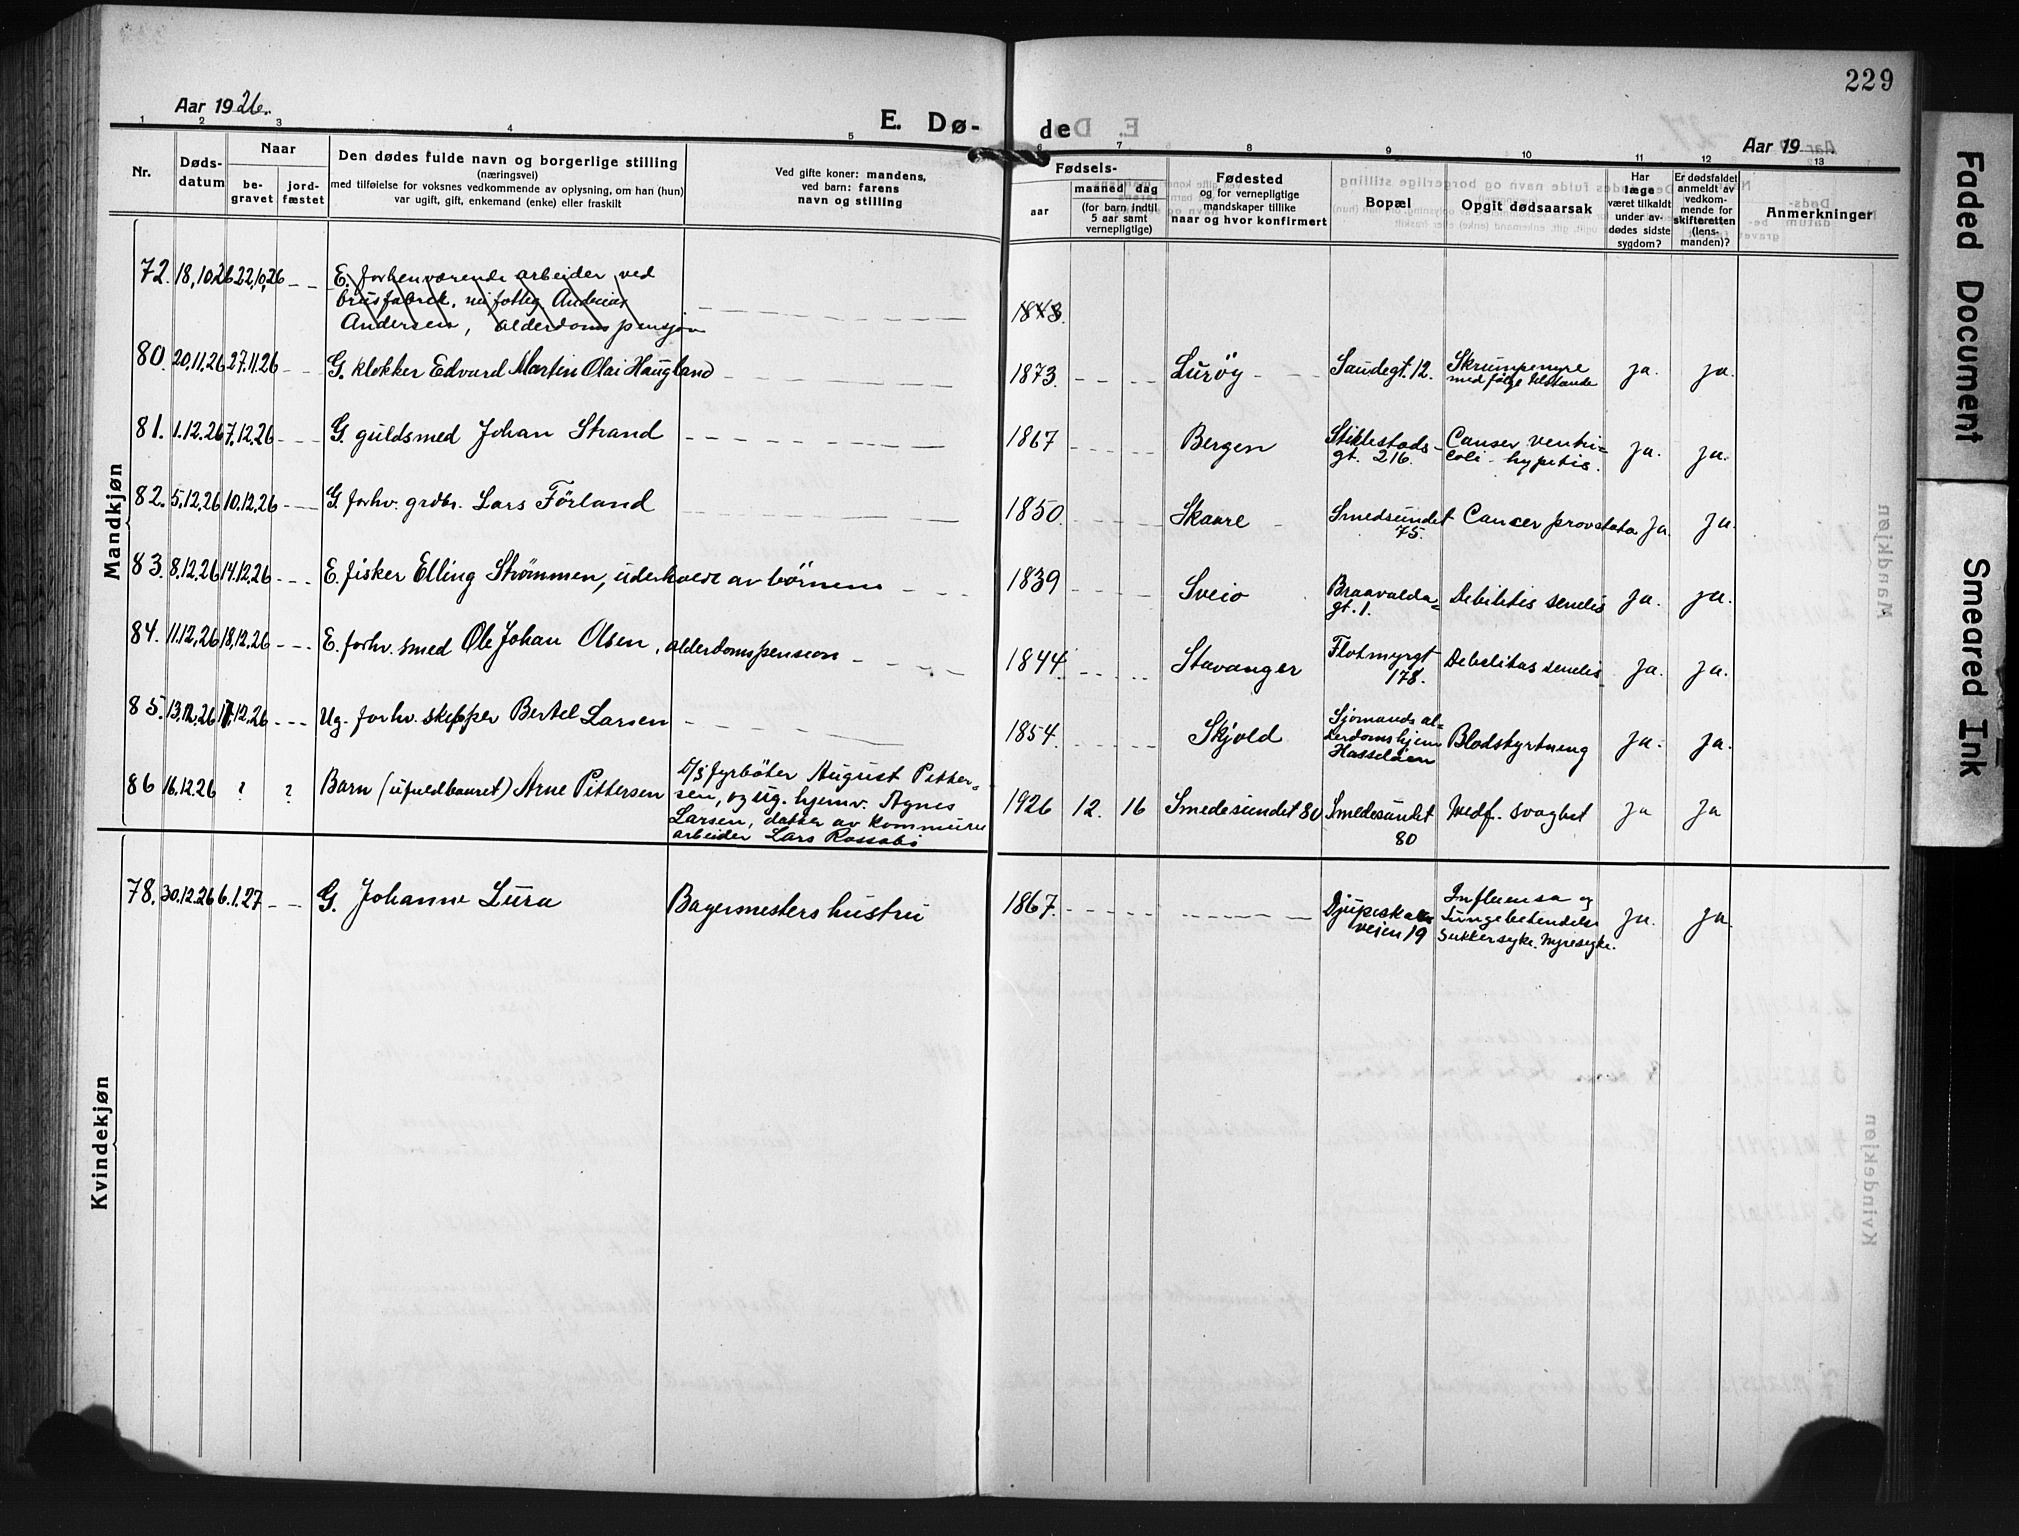 229
Aar 1926.
E. Dø-
de
Aar 19
1 2 3 4 5 6 7 8 9 10 11 12 13
Nr.
Døds-
datum
Naar
be-
gravet
jord-
fæstet
Den dødes fulde navn og borgerlige stilling
(næringsvei)
med tilføielse for voksnes vedkommende av oplysning, om han (hun)
var ugift, gift, enkemand (enke) eller fraskilt
Ved gifte koner: mandens,
ved barn: farens
navn og stilling
Fødsels-
aar
maaned dag
(for barn indtil
5 aar samt
vernepligtige)
Fødested
og for vernepligtige
mandskaper tillike
naar og hvor konfirmert
Bopæl
Opgit dødsaarsak
Har
læge
været tilkaldt
under av-
dødes sidste
sygdom?
Er dødsfaldet
anmeldt av
vedkom-
mende for
skifteretten
(lens-
manden)?
Anmerkninger
Mandkjøn
72. 18,10,26 22,10,26 E. forhenværende arbeider ved
brusfabrik, nu fattig Andreas
Andersen, alderdomspensjon 1843.
80. 20,11.26 27.11.26 G. klokker Edvard Martin Olai Haugland 1873. Lurøy Saudegt. 12. Skrumpenyre
med følge tilstande ja. ja.
81. 1.12.26 7.12.26 G. guldsmed Johan Strand 1867 Bergen Stiklestads-
gt. 216. Canser ventri=
coli - hypetis. ja. ja.
82. 5,12,26 10.12.26 G. forhv. grdbr. Lars Förland 1850. Skaare Smedsundet
75. Cancer prostata ja. ja.
83. 8.12.26 14.12.26 E. fisker Elling Strømmen, uderholdt av børnene 1839 Sveio Braavalda=
gt. 1. Debilitis senelis ja. ja.
84. 11.12,26 18,12.26 E. forhv. smed Ole Johan Olsen, alderdomspension 1844. Stavanger Flotmyrgt
178. Debelitas senelis ja. ja.
85. 13.12.26 17.12.26 Ug. forhv. skipper Bertel Larsen 1854. Skjold Sjömands al=
derdomshjem
Hasseløen Blodstyrtning ja. ja.
86 16.12.26 ? ? Barn (ufuldbauret) Arne Pettersen D/s fyrbøter August Petter=
sen, og ug. hjemv. Agnes
Larsen, datter av kommune
arbeider Lars Rossabö 1926 12. 16 Smedesundet 80 Smedesundet
80 Medf. svaghet ja ja
Kvindekjøn
78. 30.12.26 6.1.27 G. Johanne Lura Bagermesters hustru 1867. Djupeskars
veien 19 Influensa og
Lungebetendelse
Sukkersyke. Nyresyke. ja. ja.
Faded Document
Smeared Ink